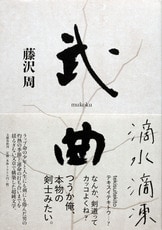 藤沢 周
武曲
mukoku
滴水滴凍
tekisuitekito
テキスイテキトウ…?
なんか、剣道って
かっこよくね?
つうか俺、
本物の
剣士みたい。